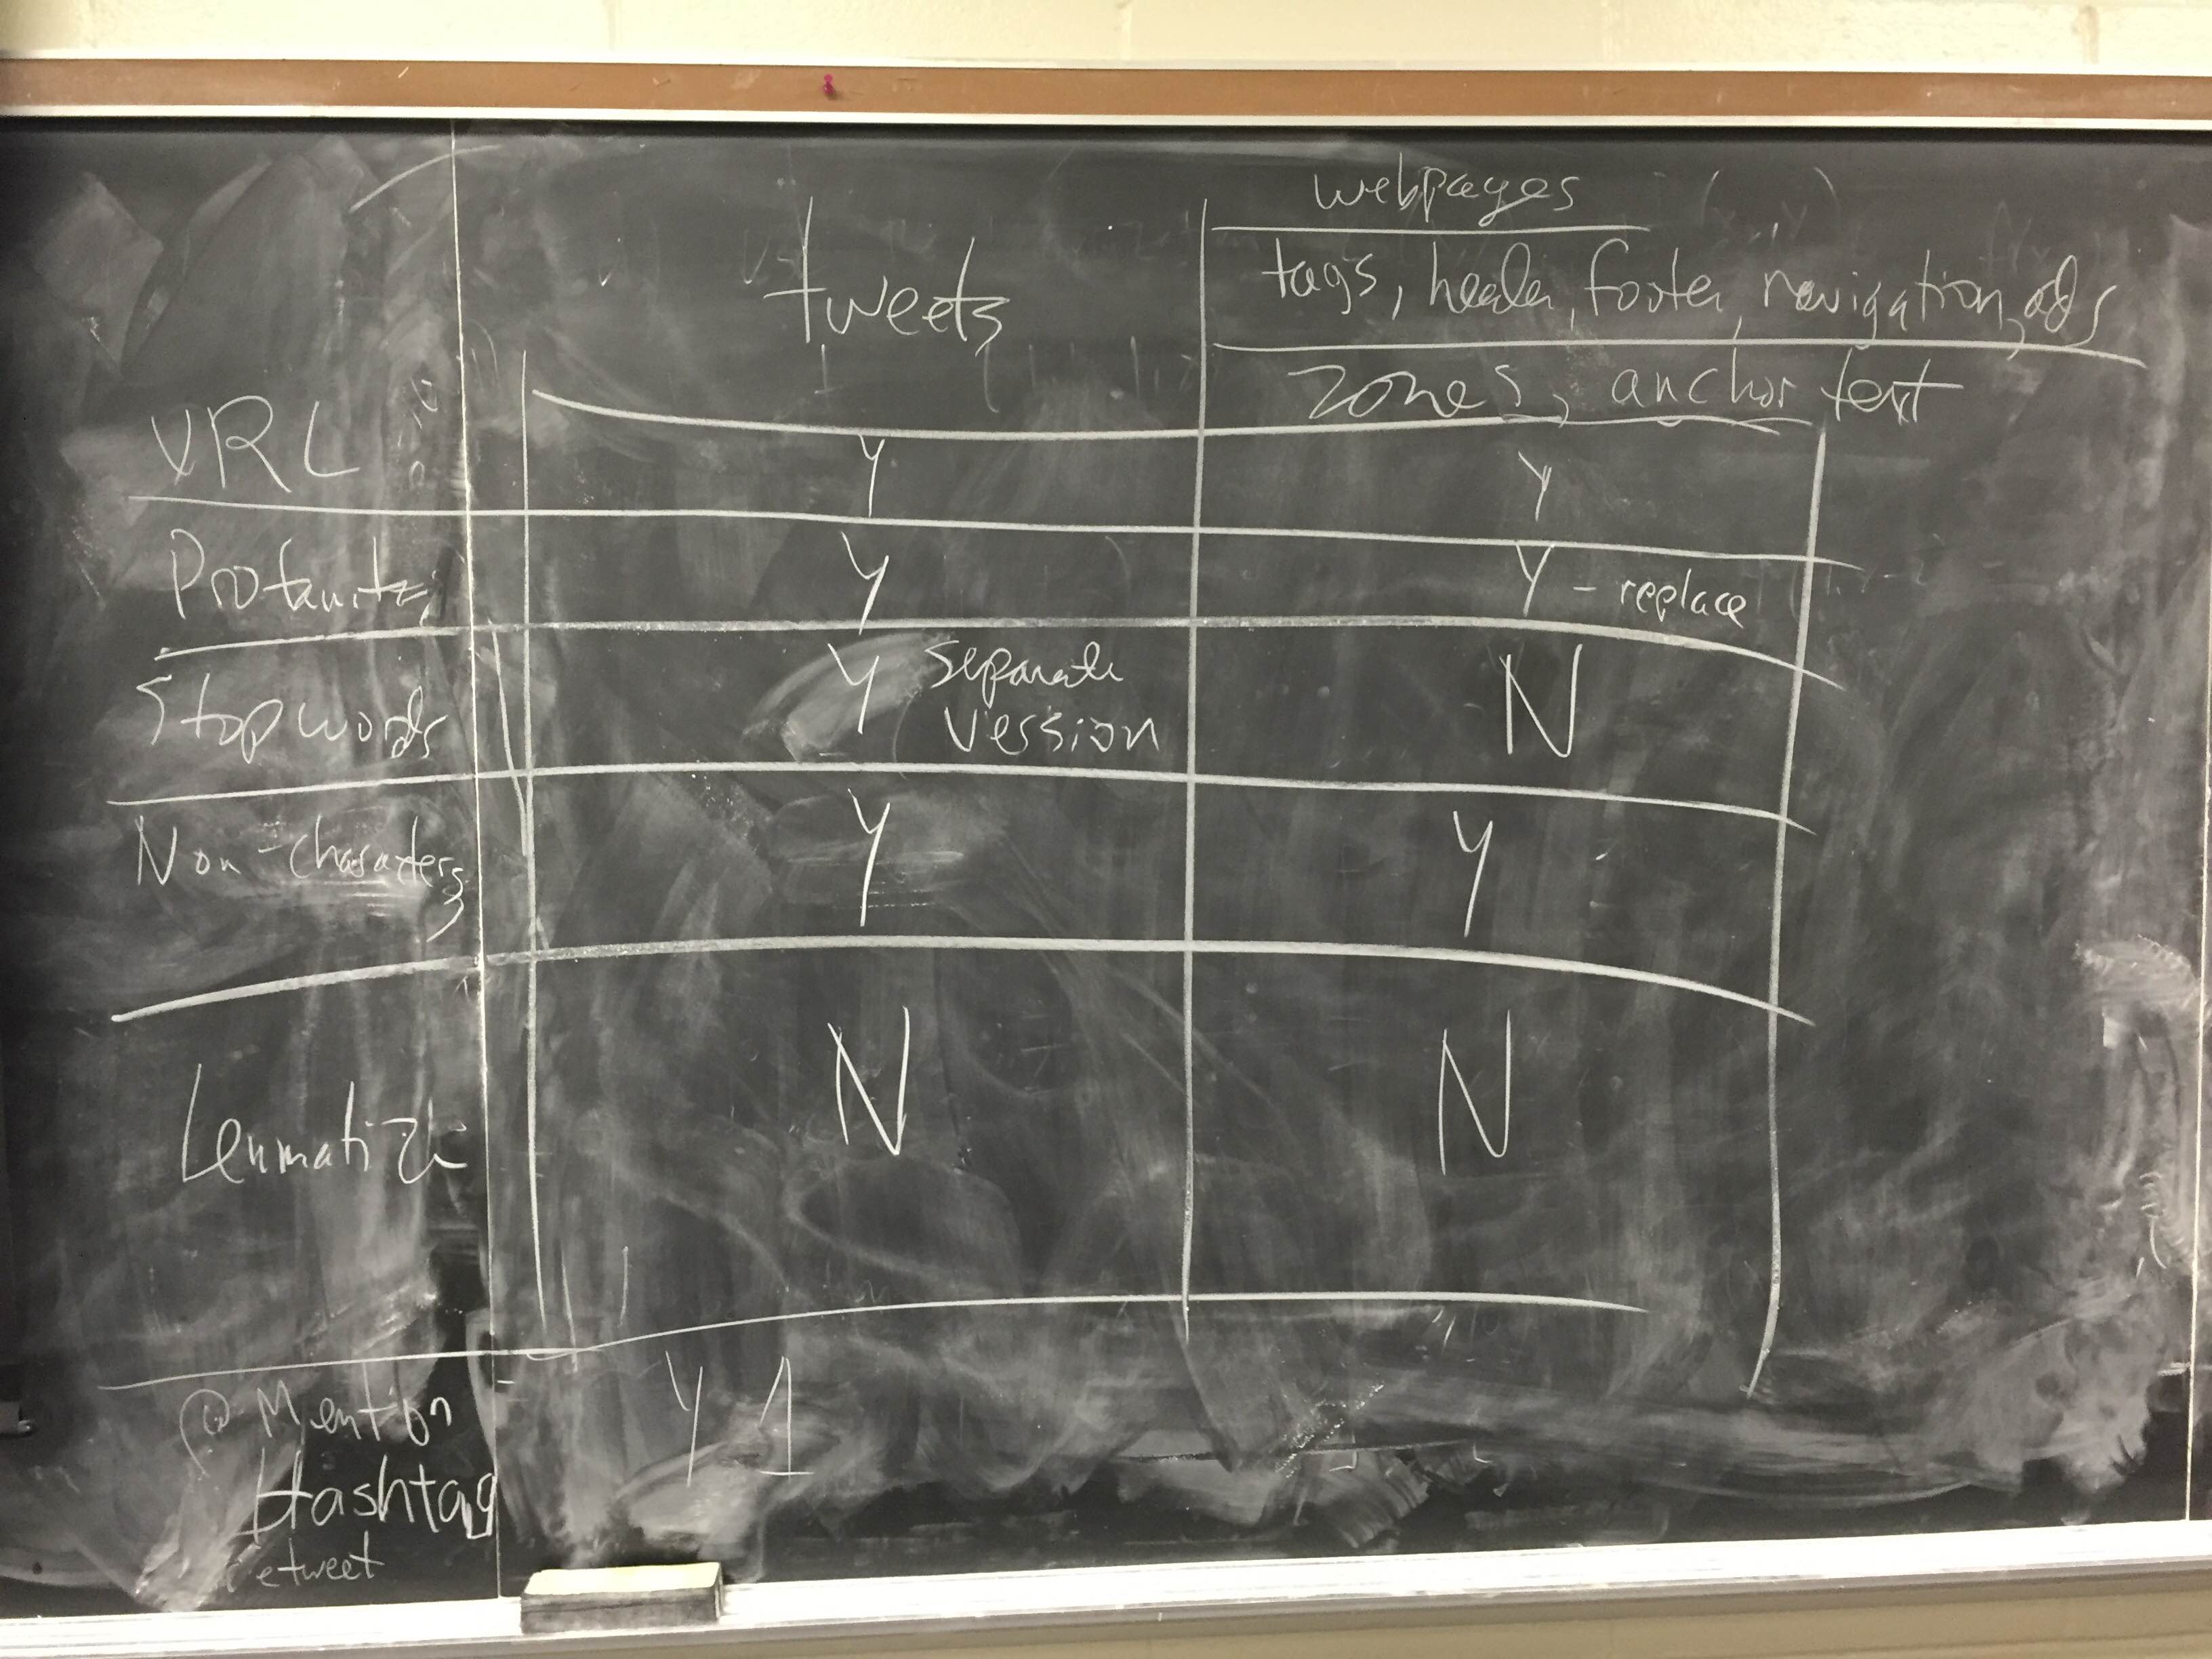 webpages
tweets
tags, header, footer, navigation, ads
zones, anchor text
URL Y Y
Profanity Y Y - replace
Stopwords Y Separate N
version
Non-characters Y Y
Lemmatize N N
@ Mention Y 1
Hashtag
retweet